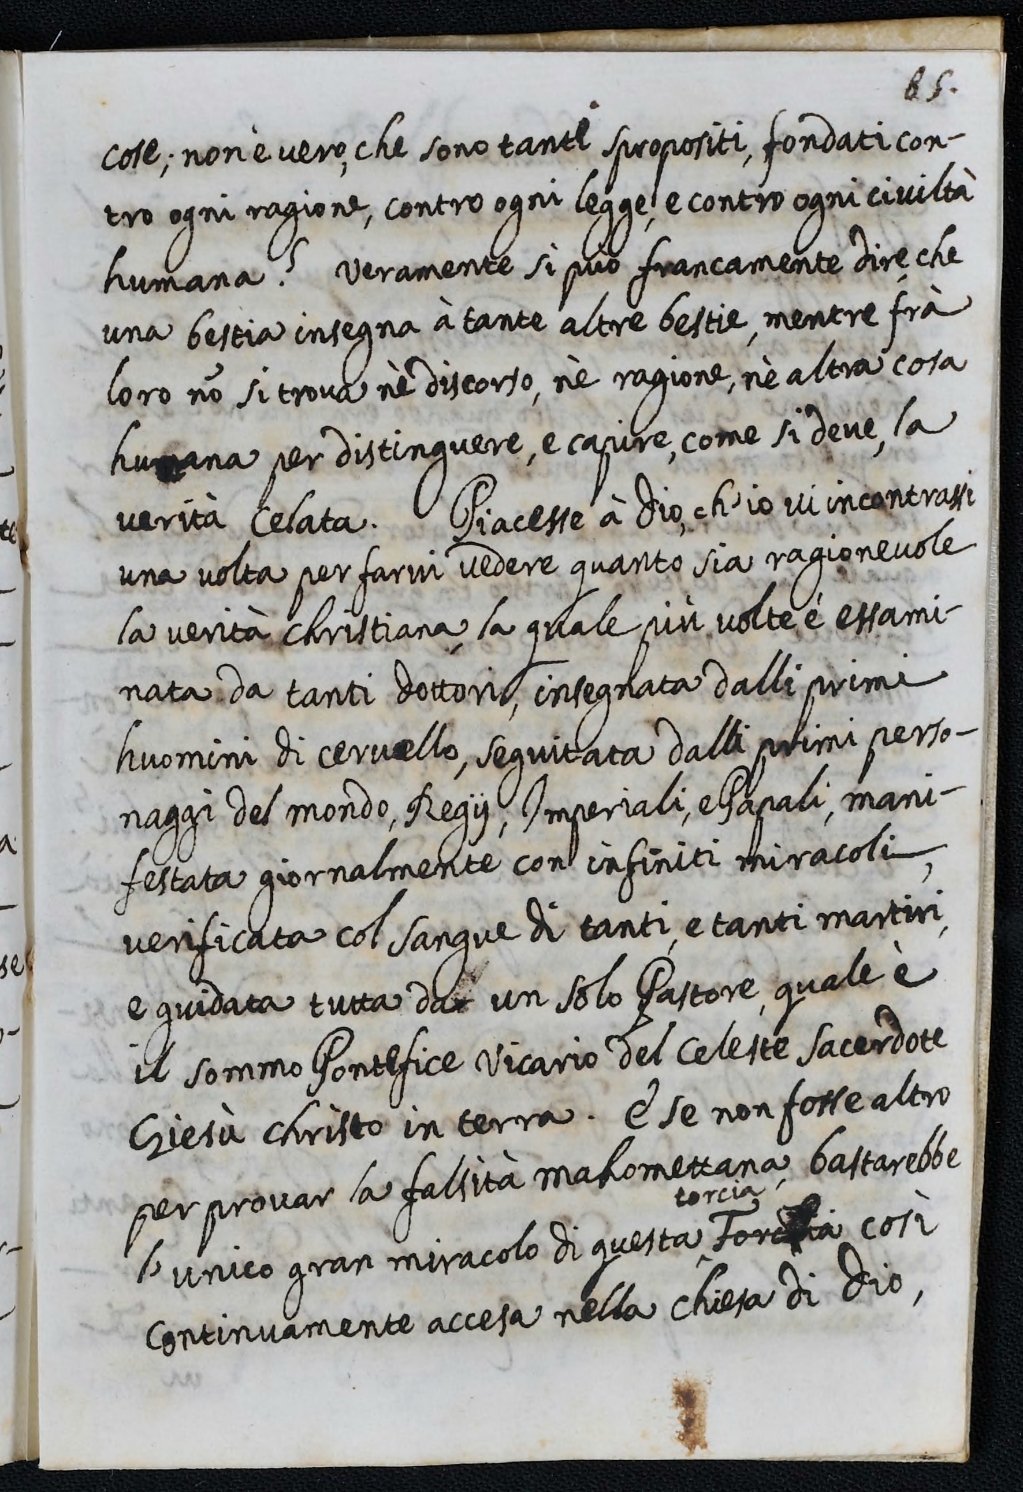 85.
cose; non è vero, che sono tanti spropositi, fondati con-
tro ogni ragione, contro ogni legge, e contro ogni civiltà
humana? Veramente si può francamente dire, che
una bestia insegna à tante altre bestie, mentre frà
loro nõ si trova nè discorso, nè ragione, nè altra cosa
humana per distinguere, e capire, come si deve, la
verità celata. Piacesse à Dio, ch'io vi incontrassi
una volta per farvi vedere quanto sia ragionevole
la verità christiana, la quale più volte è essami-
nata da tanti dottori, insegnata dalli primi
huomini di cervello, seguitata dalli primi perso-
naggi del mondo, Regij, Imperiali, e Papali, mani-
festata giornalmente con infiniti miracoli,
verificata col sangue di tanti, e tanti martiri,
e guidata tutta da un solo Pastore, quale è
il sommo Pontefice Vicario del Celeste Sacerdote
Giesù christo in terra. E se non fosse altro
per provar la falsità mahomettana, bastarebbe
torcia
l'unico gran miracolo di questa così
continuamente accesa nella chiesa di Dio,